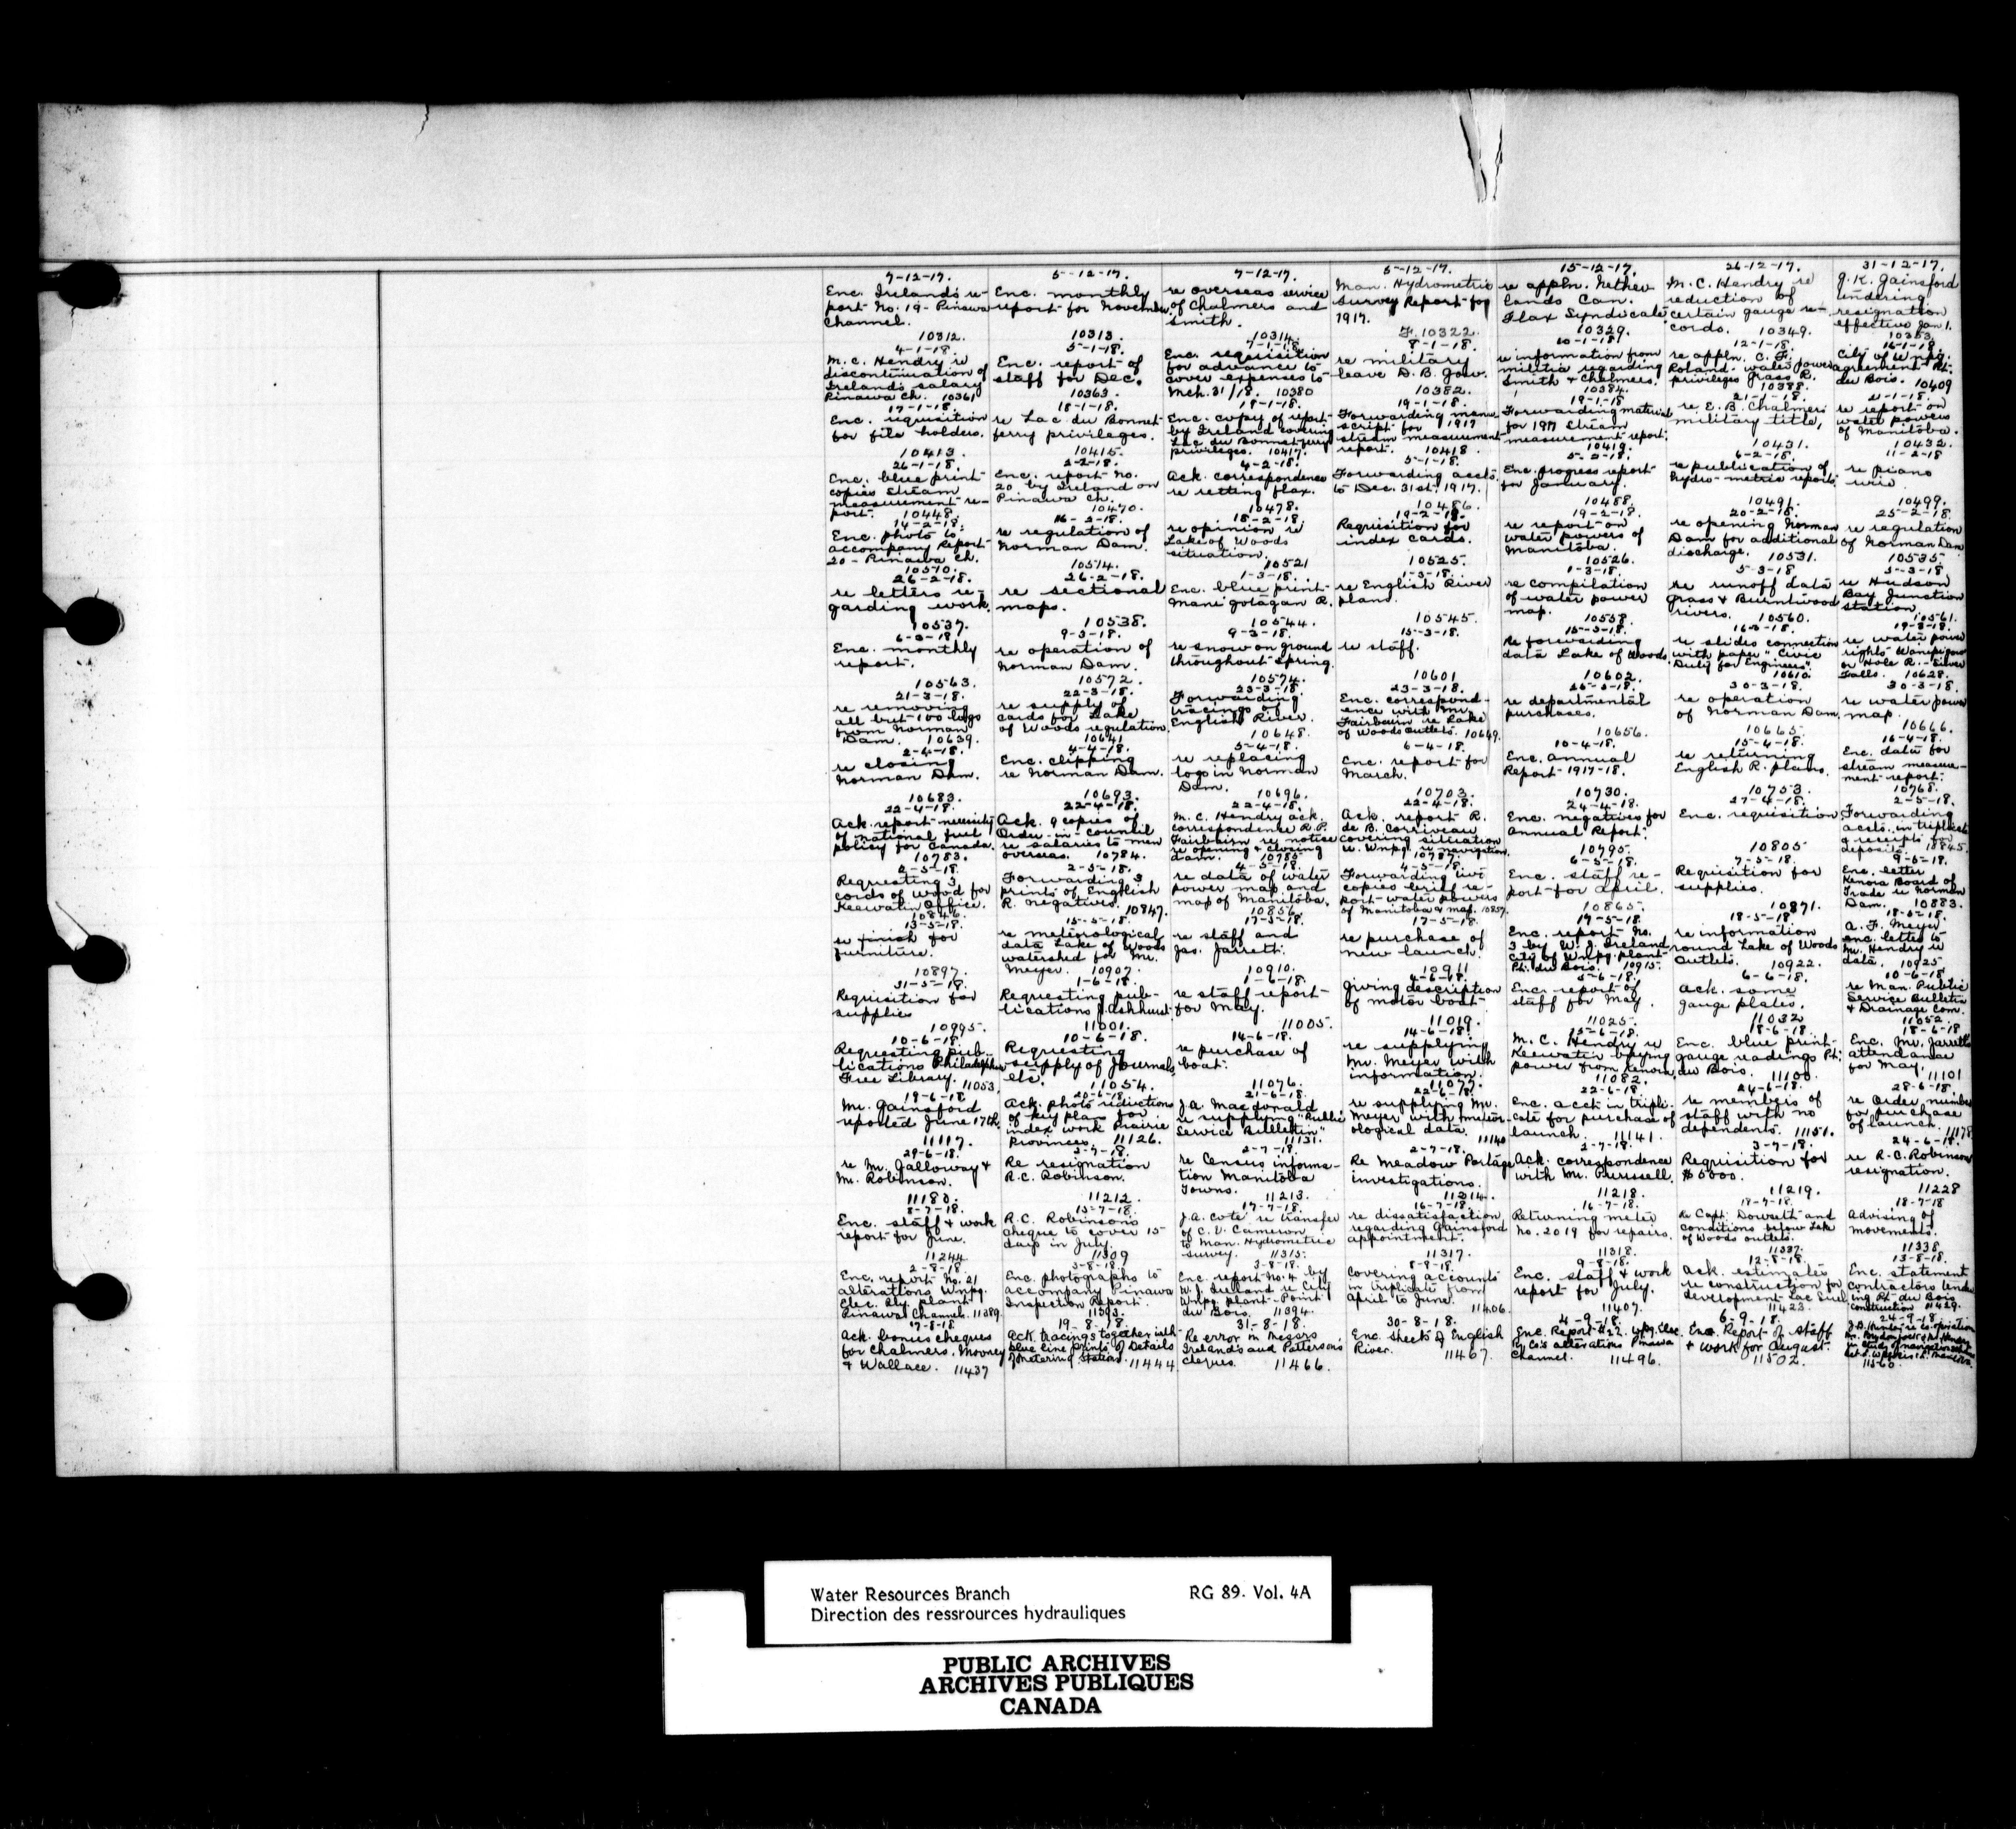 7-12-17.
Enc. Ireland's re-
port No. 19 - Pinawa
Channel.
10312.
5-12-17.
Enc. monthly
report for November.
10313.
7-12-17.
re overseas service
of Chalmers and
Smith.
10314.
5-12-17.
Man. Hydrometric
Survey Report for
1917.
F. 10322.
15-12-17.
re appln. Nether
lands Can.
Flax Syndicate.
10329.
26-12-17.
M.C. Hendry re
reduction of
certain gauge re-
cords. 10349.
31-12-17.
G.K. Gainsford
tendering
resignation
effective Jan 1.
10353.
4-1-18.
M.C. Hendry re
discontinuation of
Ireland's salary
Pinawa Ch. 10361
5-1-18.
Enc. report of
staff for Dec.
10363.
7-1-18.
Enc. requisition
for advance to
cover expenses to
Mch. 31/18. 10380
8-1-18.
re military
leave D.B. Gow.
10382.
10-1-18.
re information from
militia regarding
Smith & Chalmers.
10384.
12-1-18.
re appln. C.F.
Roland - water power
privileges Grass R.
10388.
16-1-18.
City of Wnpg.
agreement Pt.
du Bois. 10409
17-1-18.
Enc. requisition
for file holders.
10413.
18-1-18.
re Lac du Bonnet
ferry privileges.
10415.
18-1-18.
Enc. copy of report
by Ireland covering
Lac du Bonnet ferry
privileges. 10417.
19-1-18.
Forwarding manu-
script for 1917
stream measurement
report. 10418.
19-1-18
Forwarding material
for 1917 stream
measurement report.
10419.
21-1-18.
re E.B. Chalmers
military title,
10431.
21-1-18.
re report on
water powers
of Manitoba.
10432.
26-1-18.
Enc. blue print
copies stream
measurement re-
port. 10448.
2-2-18.
Enc. report No.
20 by Ireland on
Pinawa Ch.
10470.
4-2-18.
Ack. correspondence
re retting flax.
10478.
5-1-18.
Forwarding accts.
to Dec. 31st. 1917.
10486.
5-2-18.
Enc. progress report
for January.
10488.
6-2-18.
re publication of
hydro-metric report.
10491.
11-2-18
re piano
wire.
10499.
14-2-18.
Enc. photo to
accompany Report
20 - Pinawa Ch.
10510.
16-2-18.
re regulation of
Norman Dam.
10514.
18-2-18
re opinion re
Lake of Woods
situation.
10521
19-2-18.
Requisition for
index cards.
10525.
19-2-18.
re report on
water powers of
Manitoba.
10526.
20-2-18.
re opening Norman
Dam for additional
discharge. 10531.
25-2-18.
re regulation
of Norman Dam
10535.
26-2-18.
re letters re-
garding work.
10537.
26-2-18.
re sectional
maps.
10538.
1-3-18.
Enc. blue print
Manigotagan R.
10544.
1-3-18.
re English River
plans.
10545.
1-3-18.
re compilation
of water power
map.
10558.
5-3-18
re runoff data
Grass & Burntwood
rivers. 10560.
5-3-18
re Hudson
Bay Junction
station.
10561.
6-3-18
Enc. monthly
report.
10563.
9-3-18.
re operation of
Norman Dam.
10572.
9-3-18.
re snow on ground
throughout spring.
10574.
15-3-18.
re staff.
10601
15-3-18.
Re forwarding
data Lake of Woods.
10602.
16-3-18.
re slides connection
with paper "Civic
Duty for Engineers".
10610.
19-3-18.
re water power
rights Wanipigow
or Hole R. - Silver
Falls. 10628.
21-3-18.
re removing
all but 100 logs
from Norman
Dam. 10639.
22-3-18.
re supply of
cards for Lake
of Woods regulation.
10641
23-3-18.
Forwarding
tracings of
English River.
10648.
23-3-18.
Enc. correspond-
ence with Mr.
Fairbairn re Lake
of Woods outlets. 10649.
26-3-18.
re departmental
purchases.
10656.
30-3-18.
re operation
of Norman Dam.
10665.
30-3-18.
re water power
map.
10666.
2-4-18.
re closing
Norman Dam.
10683.
4-4-18.
Enc. clipping
re Norman Dam.
10693.
5-4-18.
re replacing
logs in Norman
Dam. 10696.
6-4-18.
Enc. report for
March.
10703.
10-4-18.
Enc. annual
Report 1917-18.
10730.
15-4-18.
re returning
English R. plans.
10753
16-4-18.
Enc. data for
stream measure-
ment report.
10768.
22-4-18.
Ack. report necessity
of national fuel
policy for Canada.
10783.
22-4-18.
Ack. 9 copies of
Order-in-Council
re salaries to men
overseas. 10784.
22-4-18.
M.C. Hendry ack.
correspondence R.P.
Fairbairn re notice
re opening & closing
dam. 10785.
22-4-18.
Ack. report R.
de B. Corriveau
covering situation
re. Wnpg. re navigation.
10787.
24-4-18.
Enc. negatives for
Annual Report.
10795.
27-4-18.
Enc. requisition
10805
2-5-18.
Forwarding
accts. in triplicate
& receipts for
deposits. 10845.
2-5-18.
Requesting 3
cords of wood for
Keewatin Office.
10846.
2-5-18.
Forwarding 3
prints of English
R. negatives.
10847.
4-5-18.
re data of water
power map and
map of Manitoba.
10856.
4-5-18.
Forwarding two
copies brief re-
port water powers
of Manitoba & map. 10857.
6-5-18.
Enc. staff re-
port for April.
10865.
7-5-18.
Requisition for
supplies.
10871.
9-5-18.
Enc. letter
Kenora Board of
Trade re Norman
Dam. 10883.
13-5-18.
re finish for
furniture.
10897.
15-5-18.
re meteorological
data Lake of Woods
watershed for Mr.
Meyer. 10907.
17-5-18.
re staff and
Jas. Jarrett.
10910.
17-5-18.
re purchase of
new launch.
10911
17-5-18.
Enc. report No.
3 by W.J. Ireland,
City of Wnpg. plant
Pt. du Bois. 10915.
18-5-18
re information
round Lake of Woods
Outlets. 10922.
18-5-18.
A.F. Meyer
enc. letter to
Mr. Hendry re
data. 10925
31-5-18.
Requisition for
supplies
10995.
1-6-18.
Requesting pub-
lications J. Ashhurst.
11001.
1-6-18.
re staff report
for May.
11005.
4-6-18.
Giving description
of motor boat
11019.
5-6-18.
Enc. report of
staff for May.
11025.
6-6-18.
Ack. some
gauge plates.
11032
10-6-18
re Man. Public
Service Bulletin
& Drainage Com.
11052.
10-6-18.
Requesting pub-
lications Philadelphia
Free Library. 11053.
10-6-18.
Requesting
supply of Journals
etc. 11054.
14-6-18.
re purchase of
boat.
11076.
14-6-18.
re supplying
Mr. Meyer with
information.
11077.
15-6-18.
M.C. Hendry re
Keewatin buying
power from Kenora.
11082.
18-6-18.
Enc. blue print
gauge readings Pt.
du Bois. 11100.
18-6-18
Enc. Mr. Jarrett's
attendance
for May. 11101
19-6-18
Mr. Gainsford
reported June 17th.
11117.
20-6-18.
Ack. photo reductions
of key plan for
index work Prairie
Provinces. 11126.
21-6-18.
J.A. Macdonald
re supplying "Public
Service Bulletin"
11131.
22-6-18.
re supplying Mr.
Meyer with meteor-
ological data.
11140
22-6-18
Enc. acct in tripli-
cate for purchase of
launch. 11141.
24-6-18.
re members of
staff with no
dependents. 11151.
28-6-18.
re Order number
for purchase
of launch. 11178
29-6-18.
re Mr. Galloway &
Mr. Robinson.
11180.
2-7-18.
Re resignation
R.C. Robinson.
11212.
2-7-18.
re Census informa-
tion Manitoba
Towns. 11213.
2-7-18.
Re Meadow Portage
investigations.
11214.
2-7-18.
Ack. correspondence
with Mr. Purssell.
11218.
3-7-18.
Requisition for
$5000.
11219.
24-6-18.
re R.C. Robinson
resignation.
11228
8-7-18.
Enc. staff & work
report for June.
11244.
15-7-18.
R.C. Robinson's
cheque to cover 15
days in July.
11309
17-7-18.
J.A. Cote re transfer
of C.V. Cameron
to Man. Hydrometric
survey. 11315.
16-7-18.
re dissatisfaction
regarding Gainsford
appointment.
11317.
16-7-18.
Returning meter
No. 2019 for repairs.
11318.
18-7-18.
Re Capt. Dowsett and
conditions below Lake
of Woods outlets.
11337.
18-7-18
Advising of
movements.
11338.
2-8-18.
Enc. report No. 21
alterations Wnpg.
Elec. Rly. plant
Pinawa Channel. 11389.
3-8-18.
Enc. photographs to
accompany Pinawa
Inspection Report.
11393.
3-8-18.
Enc. report No. 4 by
W.J. Ireland re City
Wnpg. plant - Point
du Bois. 11394.
8-8-18.
Covering accounts
in triplicate from
April to June.
11406.
9-8-18.
Enc. staff & work
report for July.
11407.
12-8-18.
Ack. estimates
re construction for
development Lac Seul
11423.
13-8-18.
Enc. statement
contractors tender-
ing Pt. du Bois
construction 11429.
17-8-18
Ack. bonus cheques
for Chalmers, Mooney
& Wallace. 11437
19-8-18.
Ack. tracings together with
blue line prints of Details
of metering stations.
11444
31-8-18.
Re error in Messrs
Ireland's and Patterson's
cheques.
11466.
30-8-18.
Enc. sheets of English
River.
11467.
4-9-18.
Enc. Report #22. Wpg. Elec.
Ry Co's alterations Pinawa
Channel. 11496.
6-9-18.
Enc. Report of staff
& work for August.
11502.
24-9-18.
11560.
Water Resources Branch RG 89. Vol. 4A
Direction des ressrources hydrauliques
PUBLIC ARCHIVES
ARCHIVES PUBLIQUES
CANADA